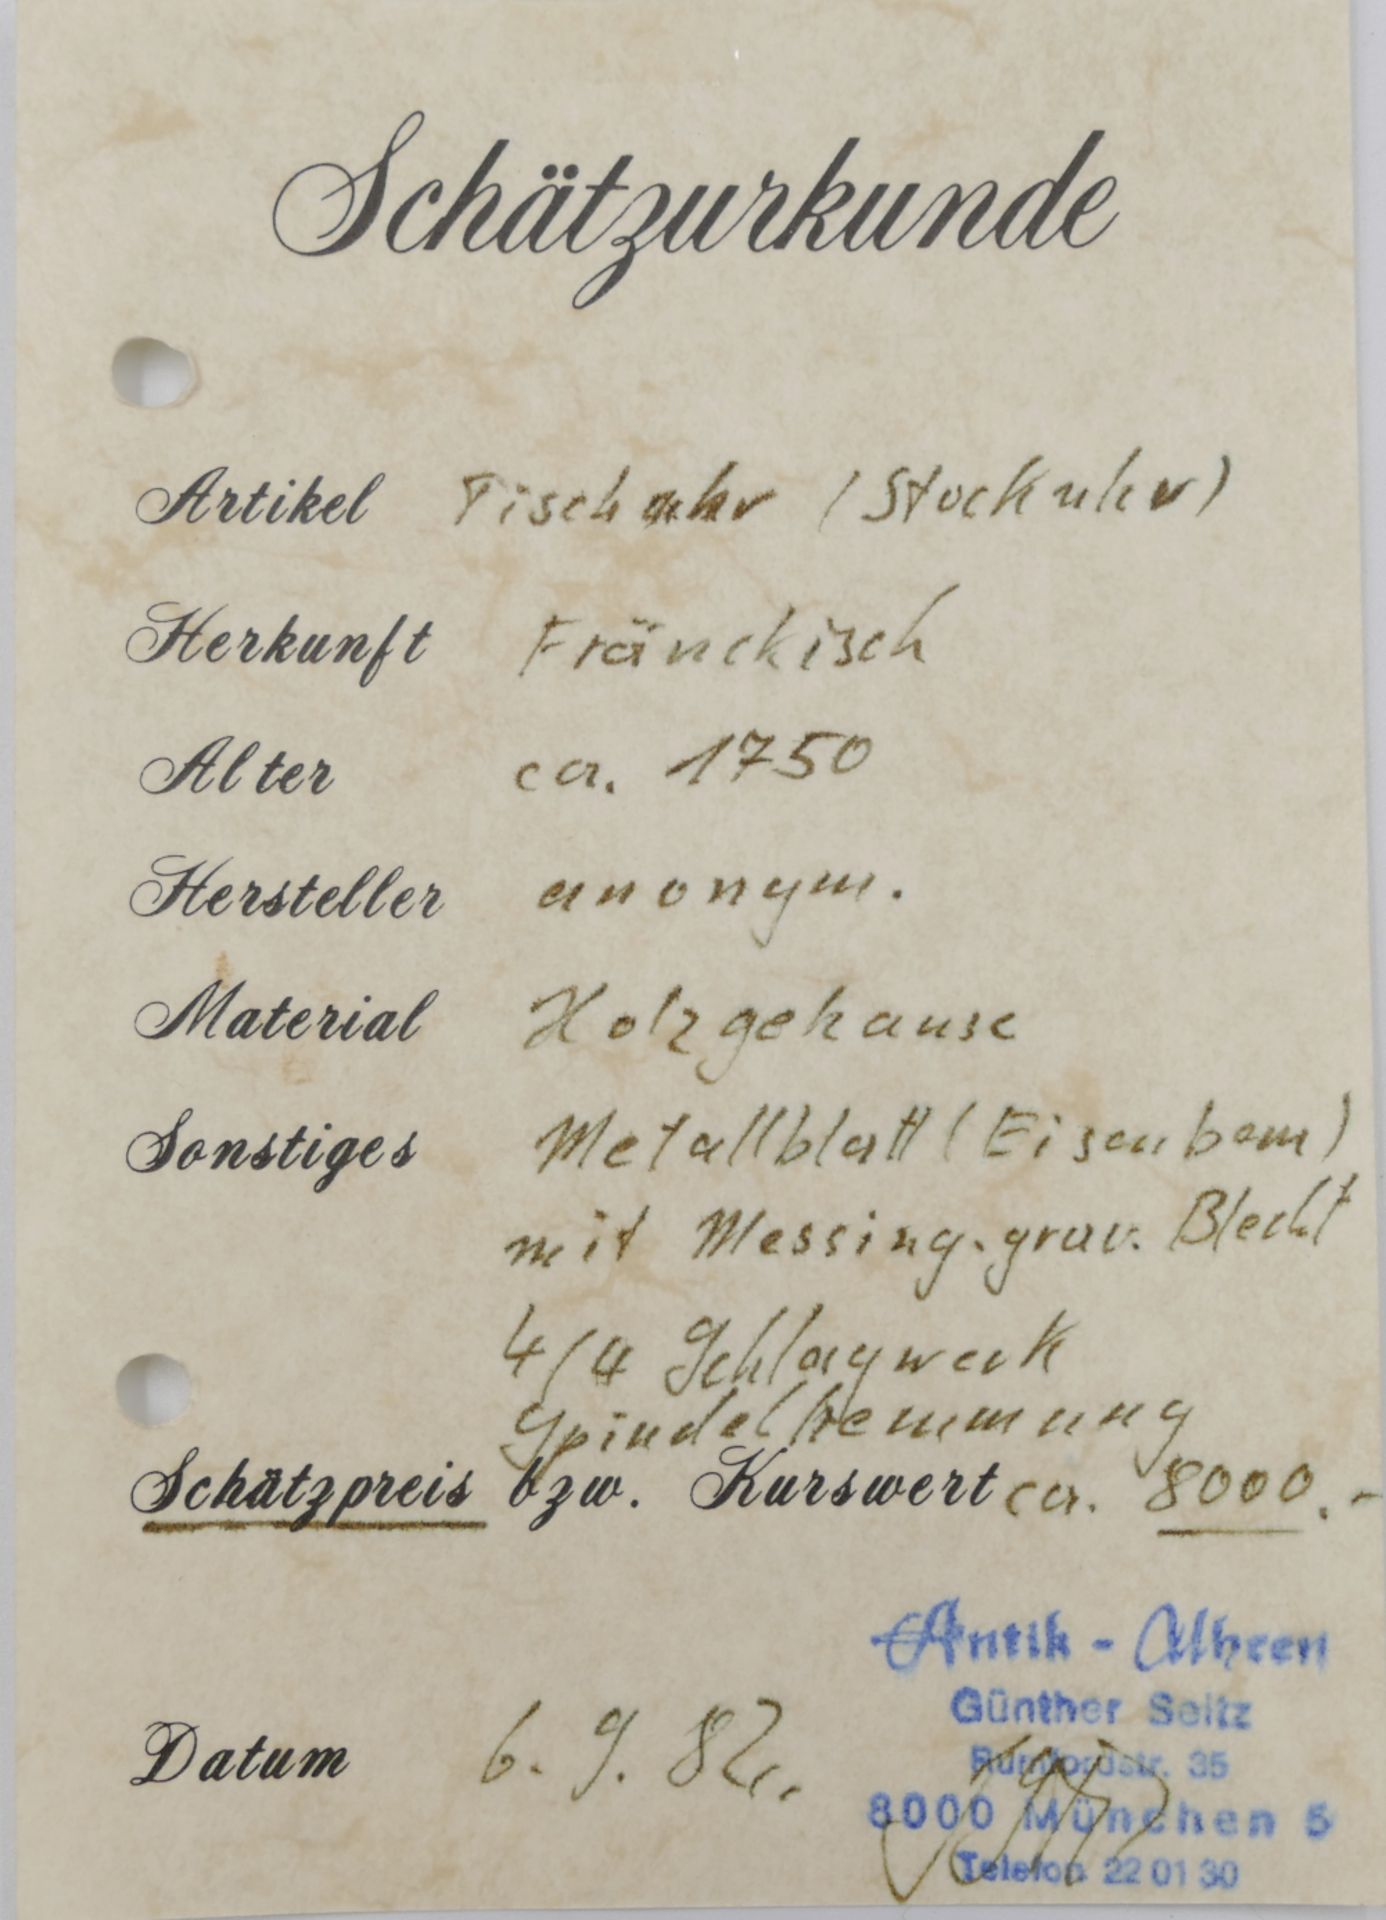 Schätzurkunde
Artikel Tischuhr (Stockuhr)
Herkunft Fränckisch
Alter ca. 1750
Hersteller anonym.
Material Holzgehause
Sonstiges Metallblatt (Eisenbem)
mit Messing.grav. Blecht
4/4 Schlagwerk
Spindelhemmung
Schätzpreis bzw. Kurswert ca. 8000.-
Antik - Uhren
Günther Seitz
Rumfordstr. 35
Datum 6. 9. 82
8000 München 5
Telefon 22 01 30